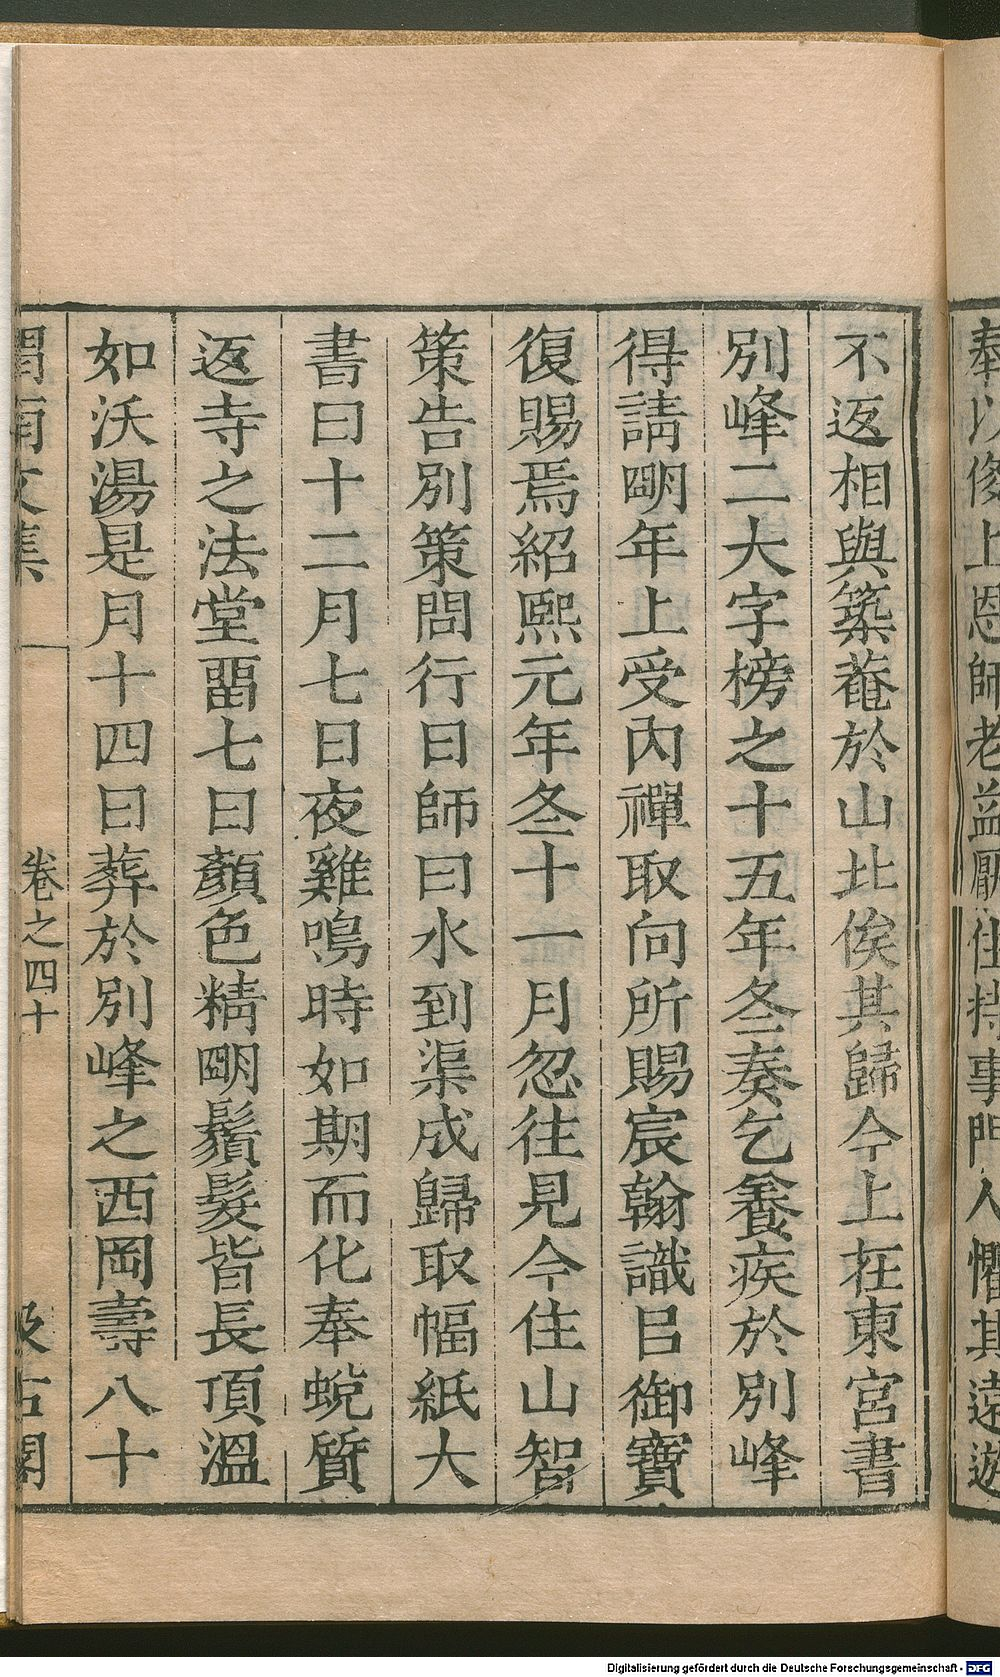 奉以俊上恩師老益厭住持事門人懼其遠遊
不返相與築菴於山北俟其歸今上在東宮書
別峰二大字榜之十五年冬奏乞養疾於別峰
得請朙年上受內禪取向所賜宸翰識㠯御寶
復賜焉紹熙元年冬十一月忽往見今住山智
策告別策問行日師曰水到渠成歸取幅紙大
書曰十二月七日夜雞鳴時如期而化奉蛻質
返寺之法堂畱七日顏色精朙鬚髮皆長頂溫
如沃湯是月十四日葬於別峰之西岡壽八十
渭南文集 卷之四十 汲古閣
Digitalisierung gefördert durch die Deutsche Forschungsgemeinschaft - DFG